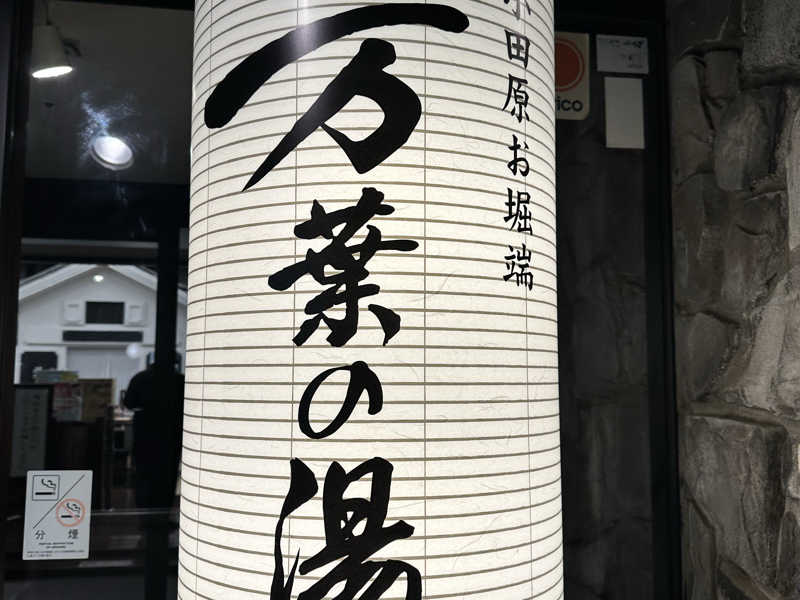 小田原お堀端
万葉の湯
ico
分煙